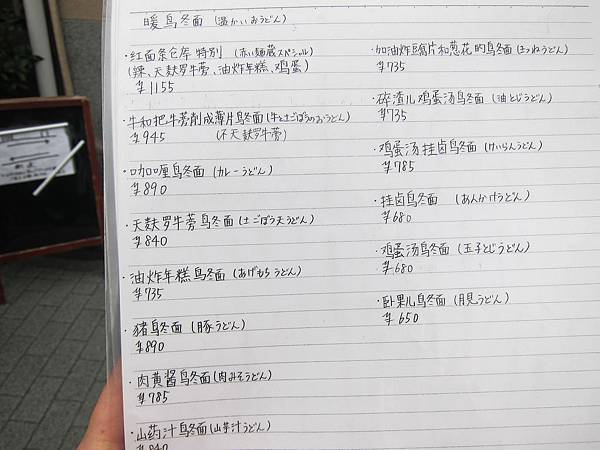 暖乌冬面 (温かいおうどん)
・红面条仓库 特别 (赤い麺蔵スペシャル)
(辣、天麸罗牛蒡、油炸年糕、鸡蛋)
¥1155
・牛和把牛蒡削成薄片乌冬面 (牛と土ごぼうのおうどん)
¥945 (不天麸罗牛蒡)
・咖喱乌冬面 (カレーうどん)
¥890
・天麸罗牛蒡乌冬面 (土ごぼう天うどん)
¥840
・油炸年糕乌冬面 (あげもちうどん)
¥735
・猪乌冬面 (豚うどん)
¥890
・肉黄酱乌冬面 (肉みそうどん)
¥785
・山药汁乌冬面 (山芋汁うどん)
¥840
・加油炸豆腐片和葱花的乌冬面 (きつねうどん)
¥735
・碎渣儿鸡蛋汤乌冬面 (油とじうどん)
¥735
・鸡蛋汤挂卤乌冬面 (けいらんうどん)
¥785
・挂卤乌冬面 (あんかけうどん)
¥680
・鸡蛋汤乌冬面 (玉子とじうどん)
¥680
・卧果儿乌冬面 (月見うどん)
¥650